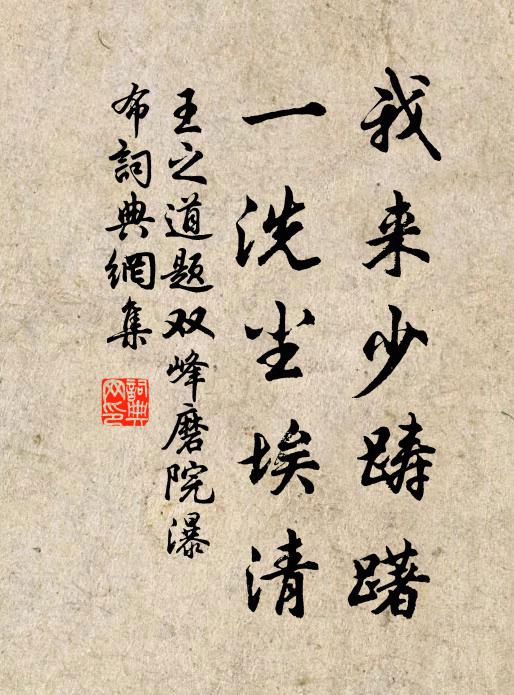 我来少踌躇
一洗尘埃清
王之道题双峰磨院瀑
布詞典網集
詞典
网印